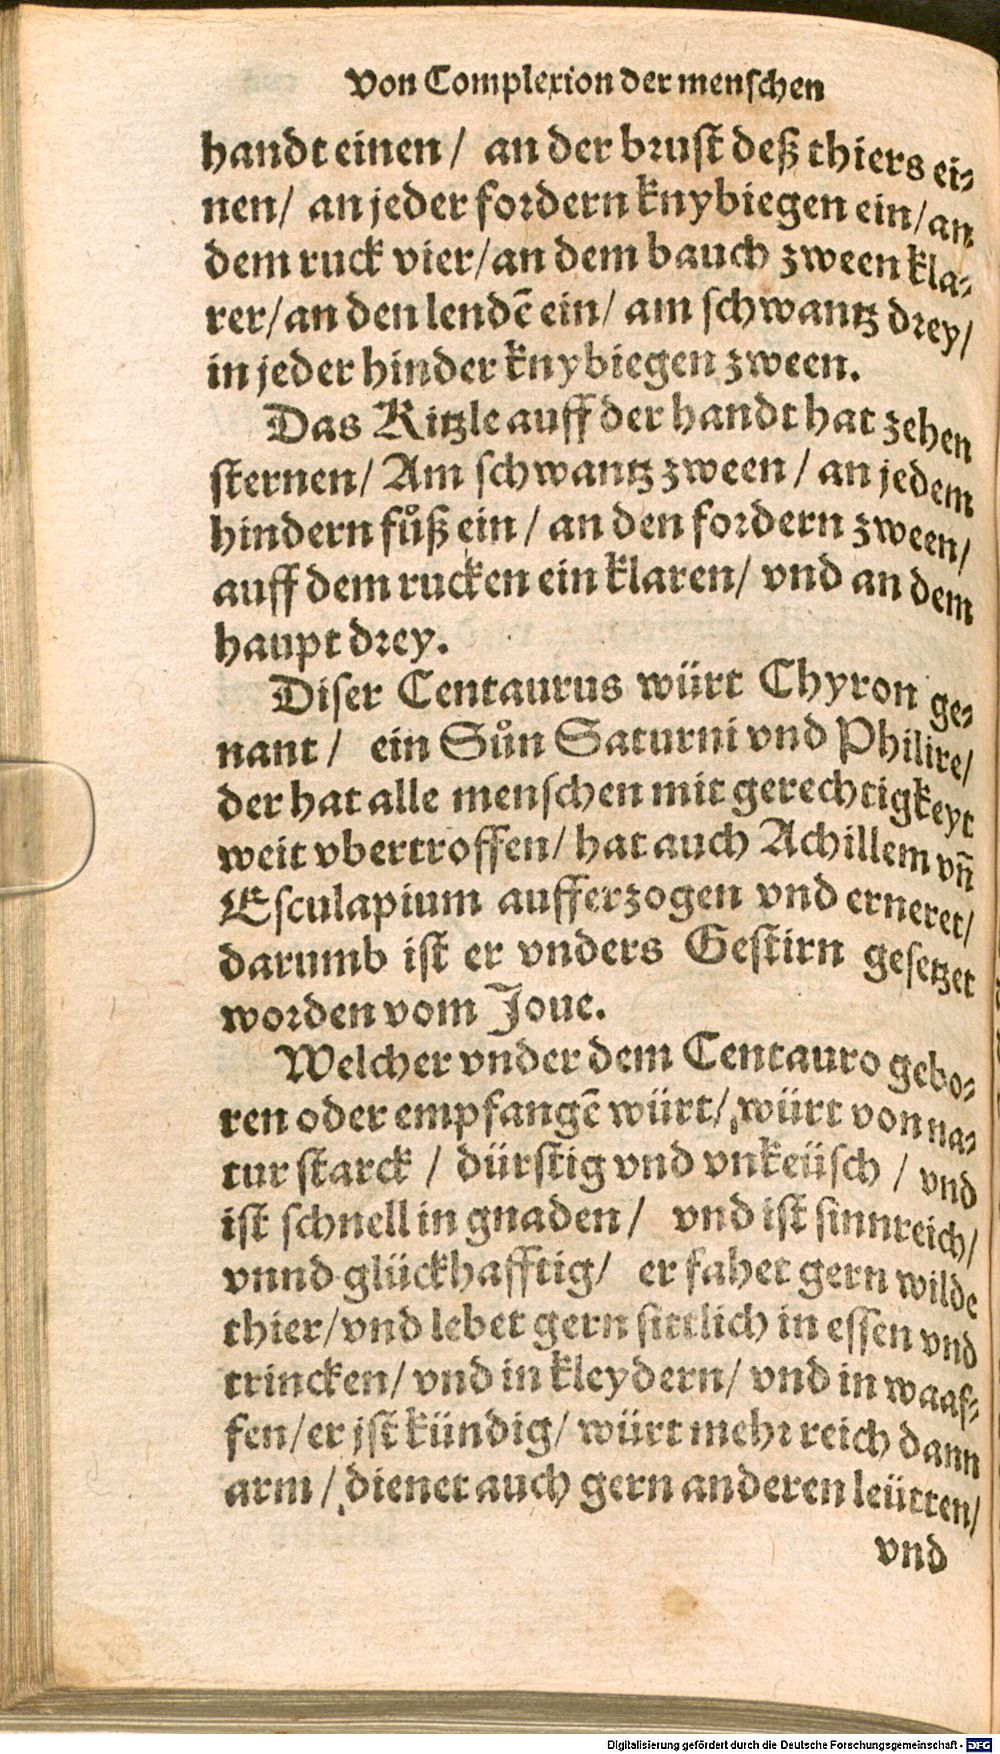 Von Complexion der menſchen
handt einen / an der bruſt deß thiers ei⸗
nen/ an jeder fordern knybiegen ein/an
dem ruck vier/an dem bauch zween kla⸗
rer/an den lendē ein/ am ſchwantz drey/
in jeder hinder knybiegen zween.
Das Kitzle auff der handt hat zehen
ſternen/ Am ſchwantz zween / an jedem
hindern fuͦß ein / an den fordern zween/
auff dem rucken ein klaren/ vnd an dem
haupt drey.
Diſer Centaurus würt Chyron ge⸗
nant / ein Suͦn Saturni vnd Philire/
der hat alle menſchen mit gerechtigkeyt
weit vbertroffen/ hat auch Achillem vn̄
Eſculapium aufferzogen vnd erneret/
darumb iſt er vnders Geſtirn geſetzet
worden vom Joue.
Welcher vnder dem Centauro gebo⸗
ren oder empfangē würt/ würt von na⸗
tur ſtarck / dürſtig vnd vnkeüſch / vnd
iſt ſchnell in gnaden / vnd iſt ſinnreich/
vnnd glückhafftig/ er fahet gern wilde
thier/vnd lebet gern ſittlich in eſſen vnd
trincken/ vnd in kleydern/ vnd in waaf⸗
fen/er jſt kündig/ würt mehr reich dann
arm / dienet auch gern anderen leütten/
vnd
Digitalisierung gefördert durch die Deutsche Forschungsgemeinschaft - DFG